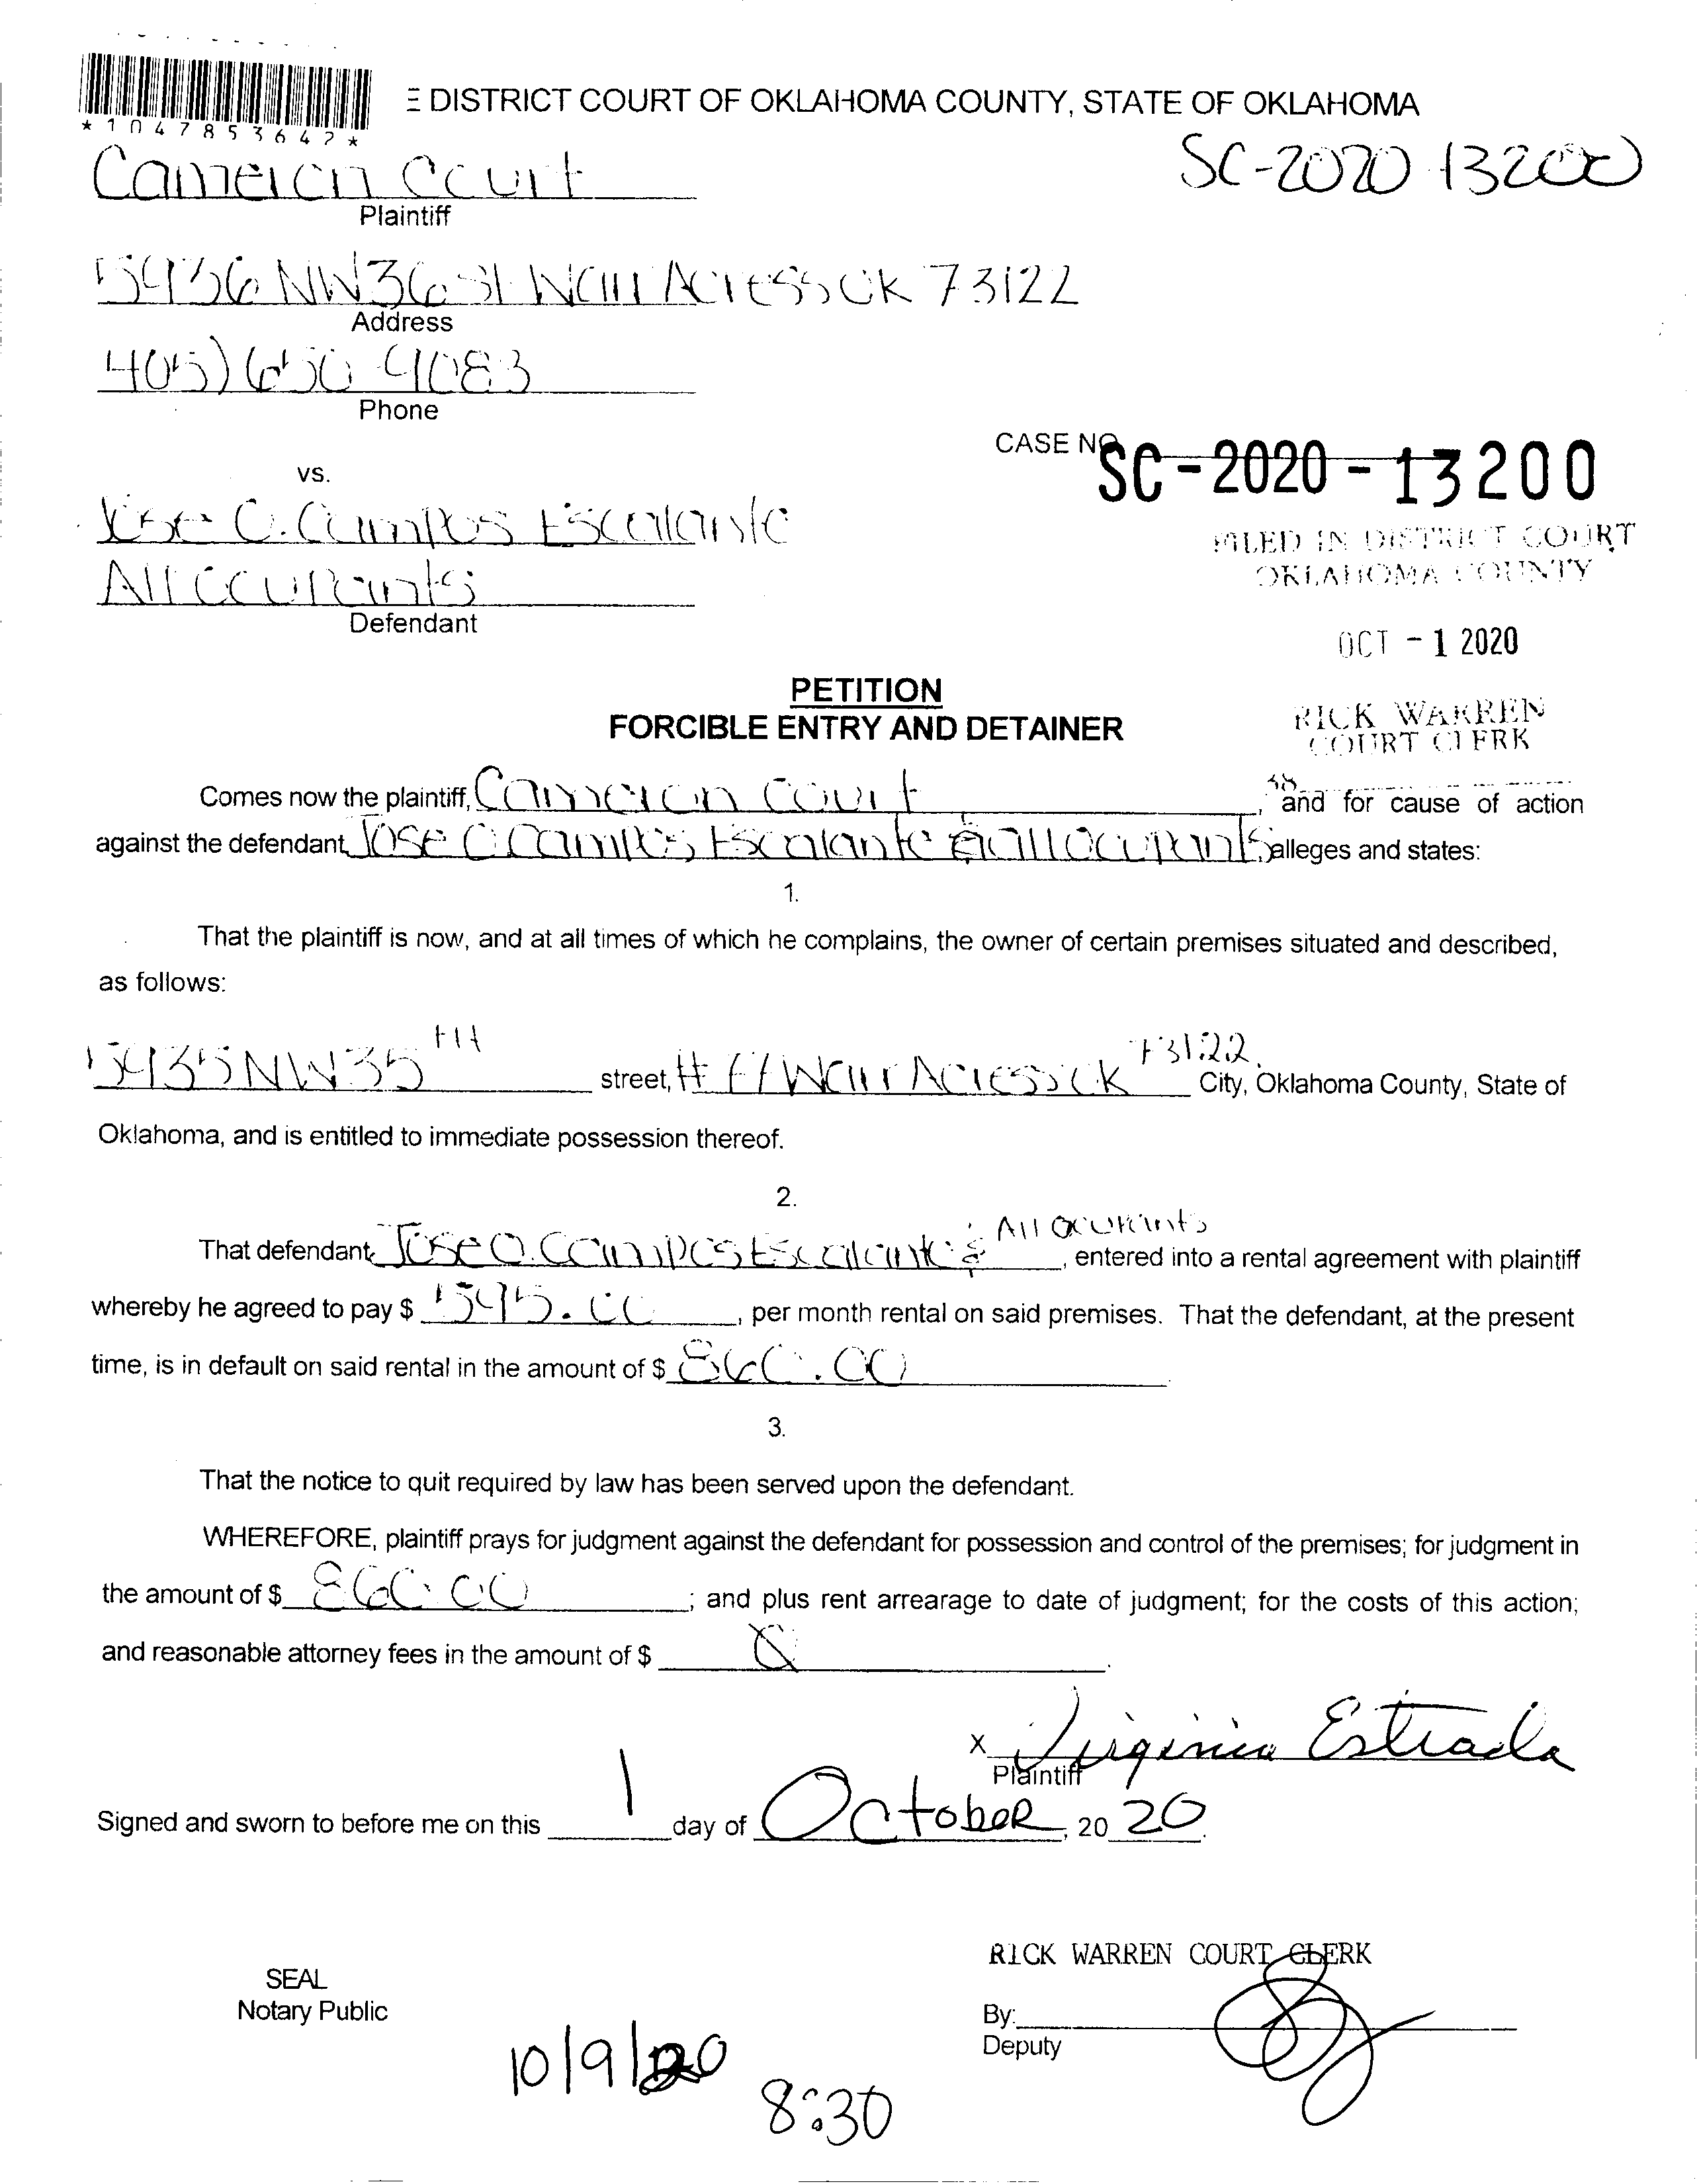 *1047853642*
E DISTRICT COURT OF OKLAHOMA COUNTY, STATE OF OKLAHOMA
Cameron Court
SC-2020 13200
Plaintiff
5436 NW 36 St Warr Acress OK 73122
Address
405) 650 9083
Phone
CASE NO
SC-2020-13200
vs.
Jose O. Campos Escalante
FILED IN DISTRICT COURT
OKLAHOMA COUNTY
All occupants
Defendant
OCT -1 2020
PETITION
FORCIBLE ENTRY AND DETAINER
RICK WARREN
COURT CLERK
Comes now the plaintiff, Cameron Court, and for cause of action
against the defendant, Jose O Campos Escalante & all occupants, alleges and states:
1.
That the plaintiff is now, and at all times of which he complains, the owner of certain premises situated and described,
as follows:
5435 NW 35TH street, # Warr Acress OK 73122 City, Oklahoma County, State of
Oklahoma, and is entitled to immediate possession thereof.
2.
That defendant, Jose O. Campos Escalante & All occupants, entered into a rental agreement with plaintiff
whereby he agreed to pay $ 595.00, per month rental on said premises. That the defendant, at the present
time, is in default on said rental in the amount of $ 860.00.
3.
That the notice to quit required by law has been served upon the defendant.
WHEREFORE, plaintiff prays for judgment against the defendant for possession and control of the premises; for judgment in
the amount of $ 860.00; and plus rent arrearage to date of judgment; for the costs of this action;
and reasonable attorney fees in the amount of $
x Virginia Estrada
Plaintiff
Signed and sworn to before me on this 1 day of October, 20 20.
RICK WARREN COURT CLERK
SEAL
Notary Public
By:
Deputy
10/9/20
8:30